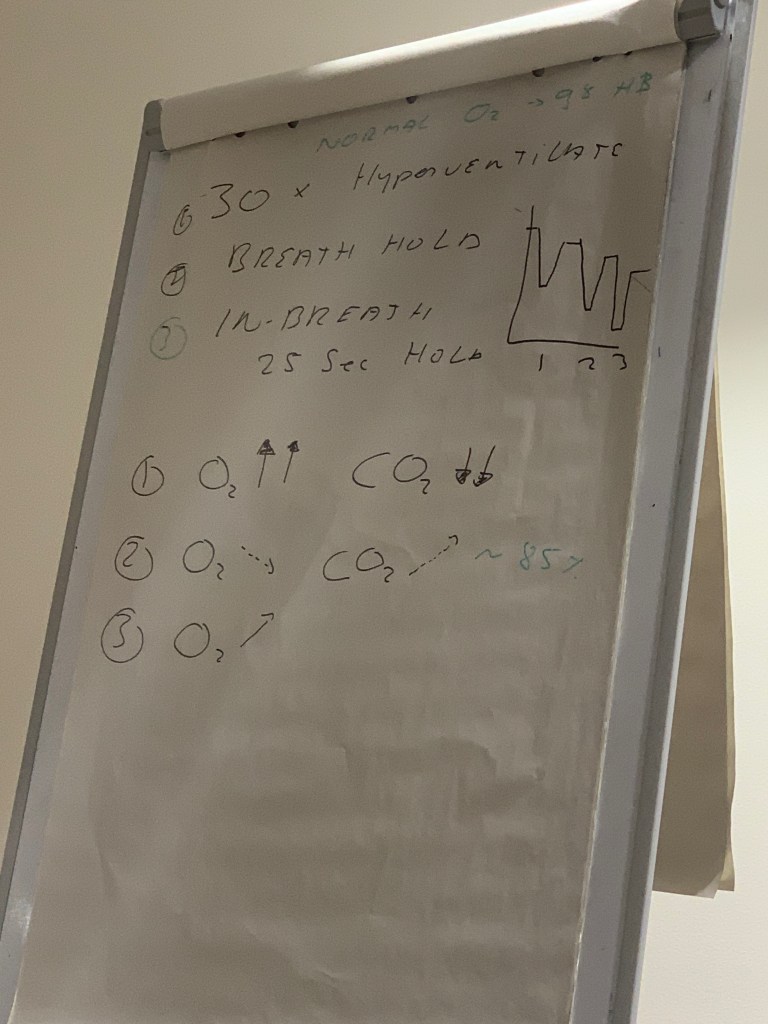 NORMAL O₂ → 98 HB
① 30 x HYPERVENTILATE
② BREATH HOLD
③ IN-BREATH
25 Sec HOLD
1 2 3
① O₂ ↑↑ CO₂ ↓↓
② O₂ ↘ CO₂ ↗ ~ 85%
③ O₂ ↗